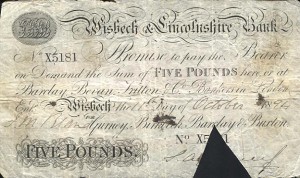 Wisbech & Lincolnshire Bank
No X5181 Promise to pay the Bearer
on Demand the Sum of FIVE POUNDS here or at
Barclay Bevan Tritton & Co Bankers London
Wisbech the Day of October 18
Gurney, Birkbeck, Barclay & Buxton
No X5
FIVE POUNDS.